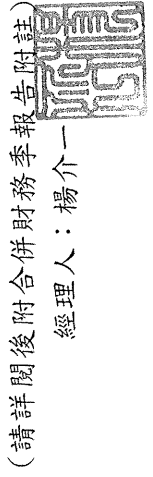 (請詳閱後附合併財務季報告附註)
經理人：楊介一